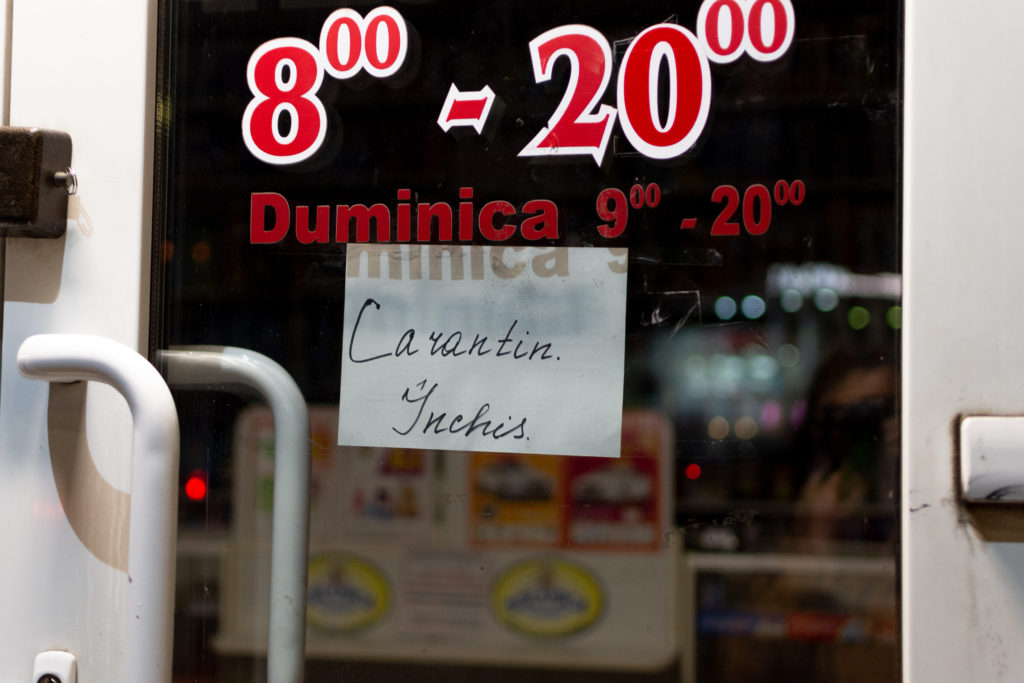 8⁰⁰ - 20⁰⁰
Duminica 9⁰⁰ - 20⁰⁰
Carantin.
Închis.